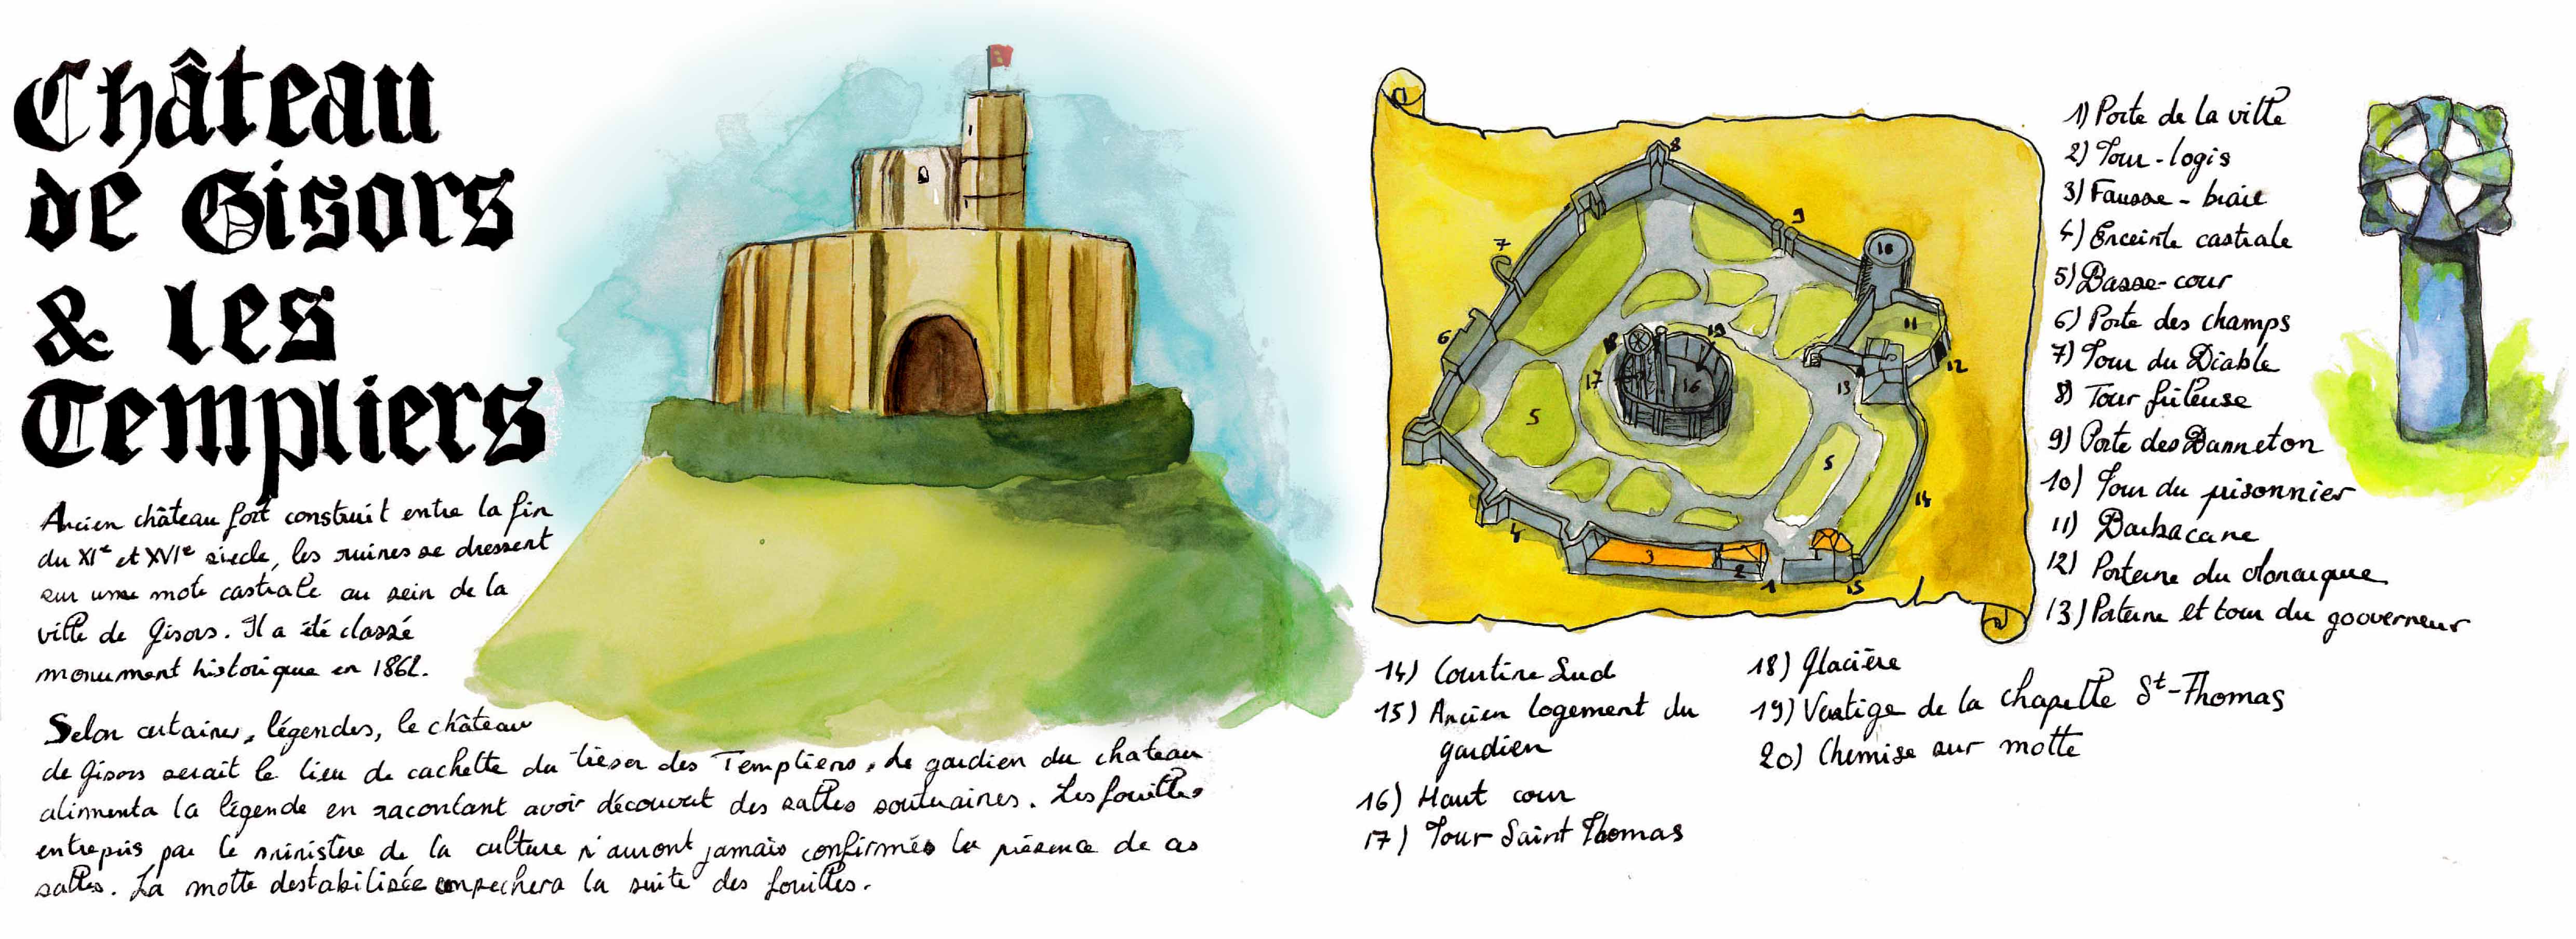 Château
de Gisors
& les
Templiers
Ancien château fort construit entre la fin
du XIe et XVIe siecle, les ruines se dressent
sur une mote castrale au sein de la
ville de Gisors. Il a été classé
monument historique en 1862.
Selon certaines, légendes, le château
de Gisors serait le lieu de cachette du trésor des Templiers. Le gardien du chateau
alimenta la légende en racontant avoir découvert des salles souteraines. Les fouilles
entrepris par le ministère de la culture n'auront jamais confirmés la présence de ces
salles. La motte destabilisée empechera la suite des fouilles.
8
9
7
10
11
6
12
18
19
17
16
13
5
5
14
4
3
2
1
15
1) Porte de la ville
2) Tour-logis
3) Fausse-braie
4) Enceinte castrale
5) Basse-cour
6) Porte des champs
7) Tour du Diable
8) Tour fuileuse
9) Porte des Danneton
10) Tour du prisonnier
11) Barbacane
12) Poterne du Monarque
13) Poterne et tour du goouverneur
14) Courtine Sud
15) Ancien logement du
gardien
16) Haut cour
17) Tour Saint Thomas
18) Glacière
19) Vestige de la chapelle St-Thomas
20) Chemise sur motte